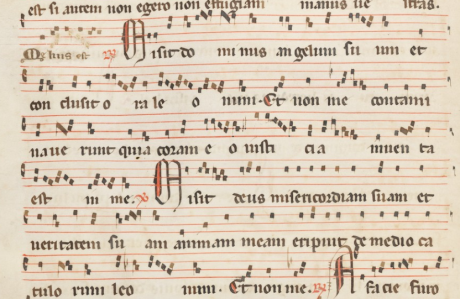 est si autem non egero non effugiam manus ue stras.
Melius est ℟ Misit do mi nus an gelum su um et
con clusit o ra le o num. Et non me contami
naue runt quia coram e o iusti cia inuen ta
est in me. ℣ Misit deus misericordiam suam et
ueritatem su am animam meam eripuit de medio ca
tulo rum leo num. Et non me. ℟ A facie furo